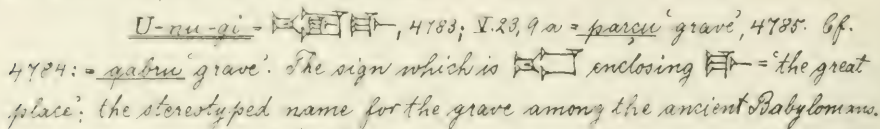 U-nu-gi = , 4783; V. 23, 9 a = parçu 'grave', 4785. Cf.
4784: = qabru 'grave'. The sign which is enclosing = 'the great
place'; the stereotyped name for the grave among the ancient Babylonians.